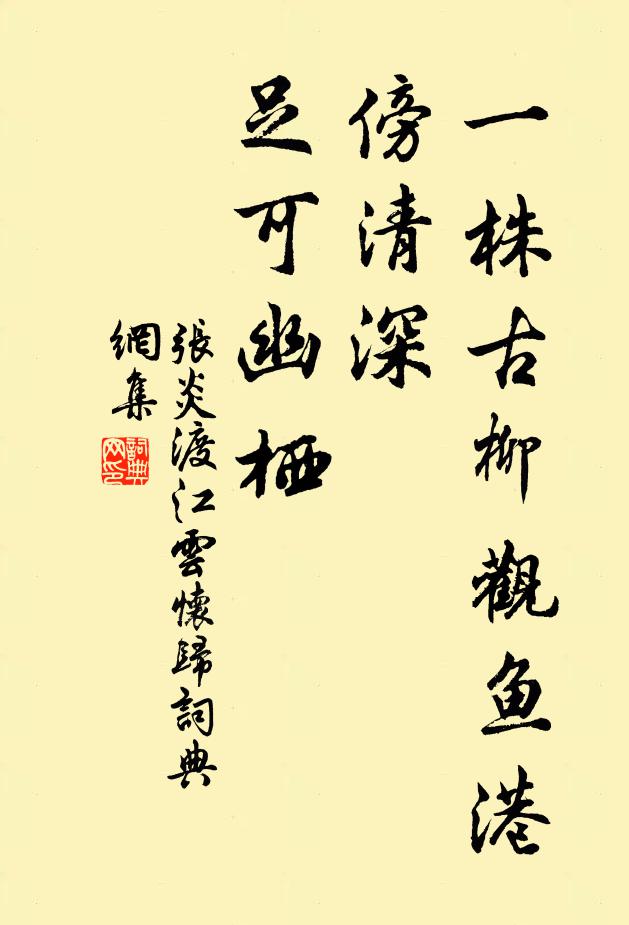 一株古柳觀鱼港
傍清深
足可幽栖
張炎渡江雲懷歸詞典
網集
詞典
网印